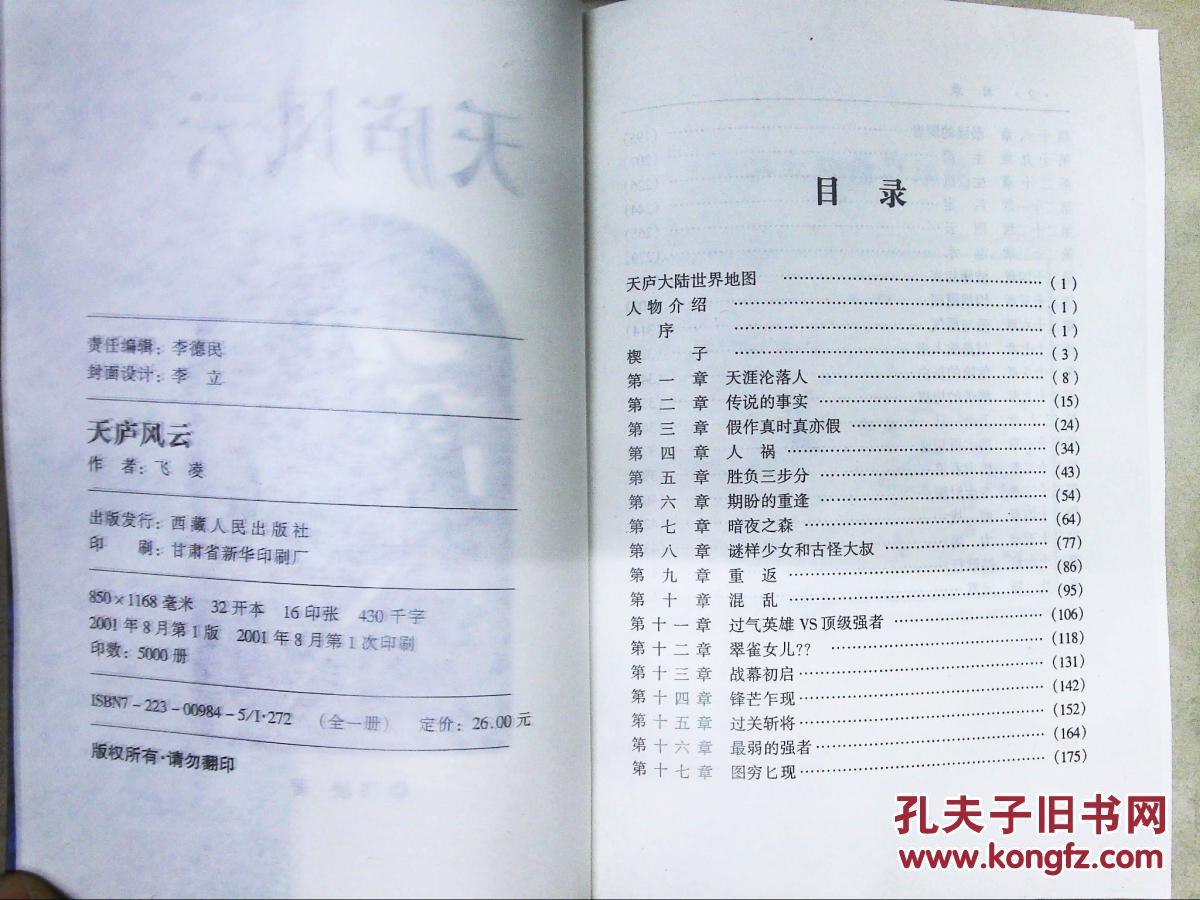 天庐风云
责任编辑：李德民
封面设计：李 立
天庐风云
作 者：飞 凌
出版发行：西藏人民出版社
印 刷：甘肃省新华印刷厂
850×1168毫米 32开本 16印张 430千字
2001年8月第1版 2001年8月第1次印刷
印数：5000册
ISBN7-223-00984-5/I·272 （全一册） 定价：26.00元
版权所有·请勿翻印
目 录
天庐大陆世界地图 ……………………（1）
人物介绍 ……………………（1）
序 ……………………（1）
楔 子 ……………………（3）
第 一 章 天涯沦落人 ……………………（8）
第 二 章 传说的事实 ……………………（15）
第 三 章 假作真时真亦假 ……………………（24）
第 四 章 人 祸 ……………………（34）
第 五 章 胜负三步分 ……………………（43）
第 六 章 期盼的重逢 ……………………（54）
第 七 章 暗夜之森 ……………………（64）
第 八 章 谜样少女和古怪大叔 ……………………（77）
第 九 章 重 返 ……………………（86）
第 十 章 混 乱 ……………………（95）
第十一章 过气英雄VS顶级强者 ……………………（106）
第十二章 翠雀女儿?? ……………………（118）
第十三章 战幕初启 ……………………（131）
第十四章 锋芒乍现 ……………………（142）
第十五章 过关斩将 ……………………（152）
第十六章 最弱的强者 ……………………（164）
第十七章 图穷匕现 ……………………（175）
孔夫子旧书网
www.kongfz.com